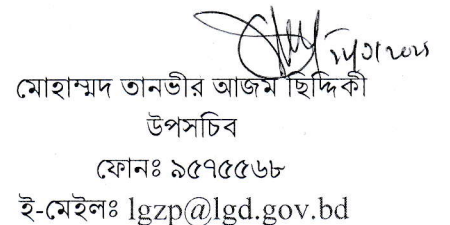 মোহাম্মদ তানভীর আজম ছিদ্দিকী
উপসচিব
ফোনঃ ৯৫৭৫৫৬৮
ই-মেইলঃ lgzp@lgd.gov.bd